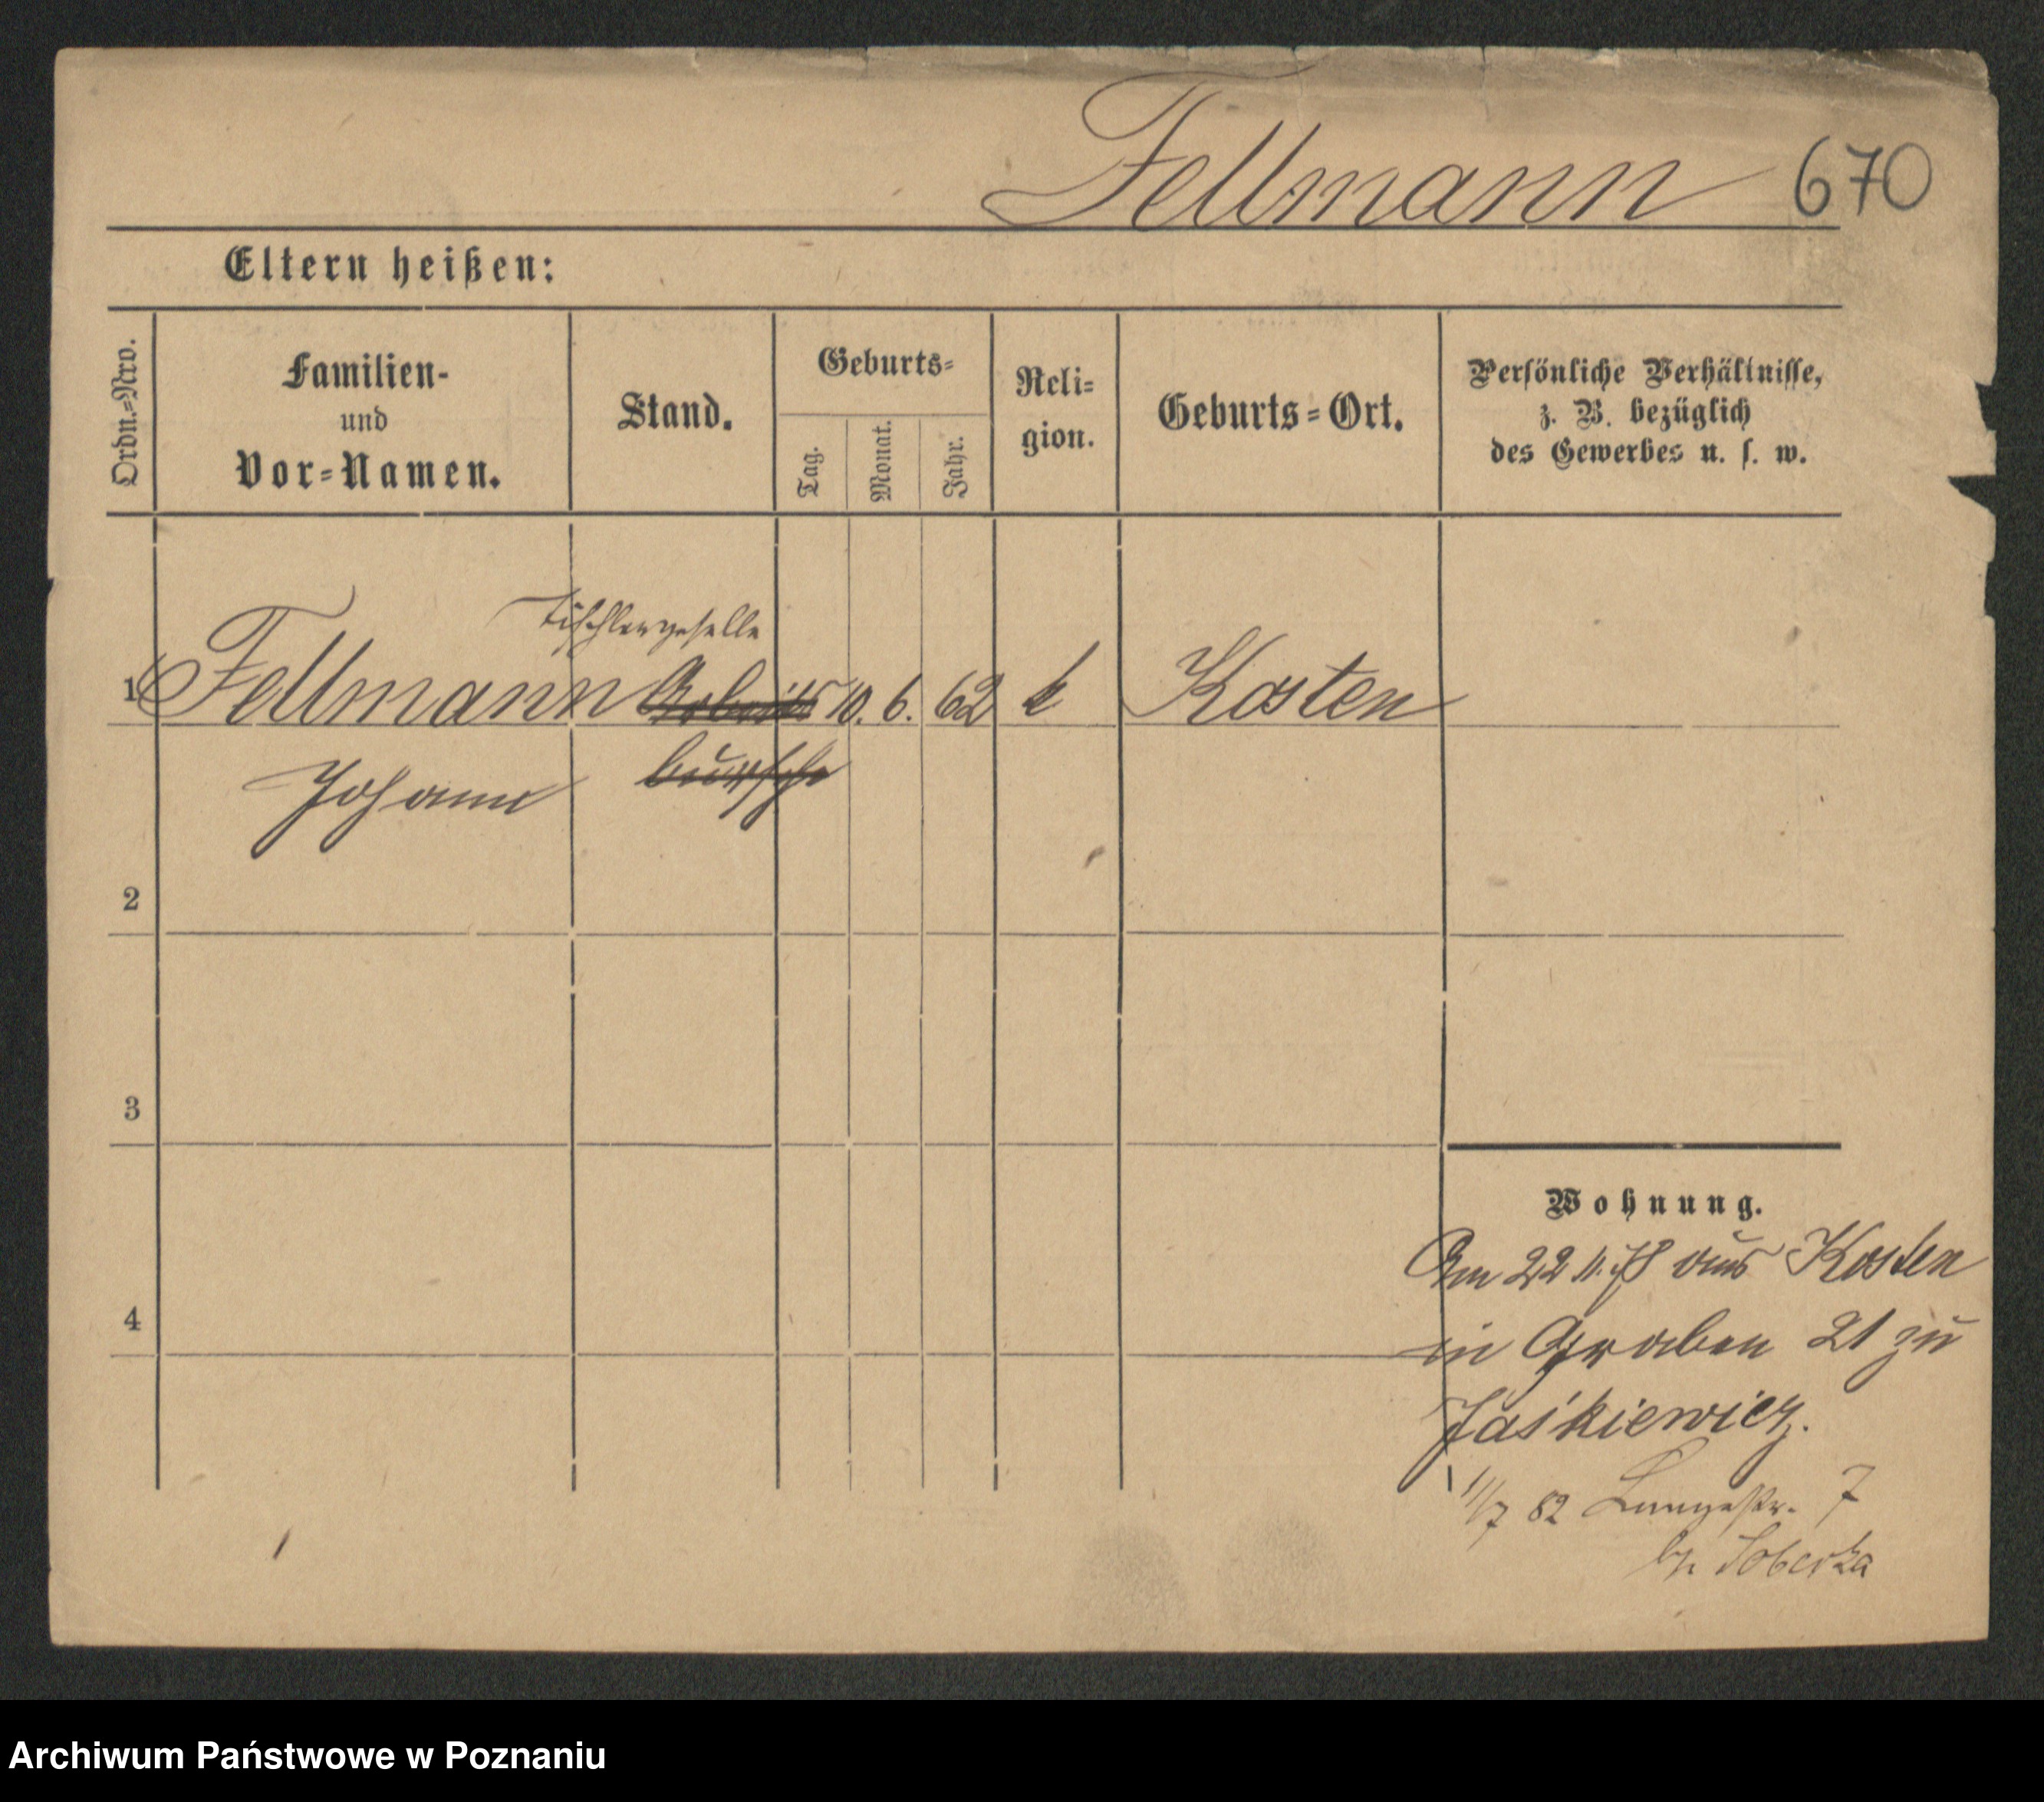 Fellmann 670
Eltern heißen:
Ordn.=Nro.
Familien-
und
Vor=Namen.
Stand.
Geburts=
Tag.
Monat.
Jahr.
Reli=
gion.
Geburts=Ort.
Persönliche Verhältnisse,
z. B. bezüglich
des Gewerbes u. s. w.
Tischlergeselle
1 Fellmann Arbeits 10. 6. 62 k Kosten
Johann bursche
2
3
4
Wohnung.
Am 22 11. 78 aus Kosten
in Graben 21 zu
Jaśkiewicz.
11/7 82 Langestr. 7
by Soberka
Archiwum Państwowe w Poznaniu